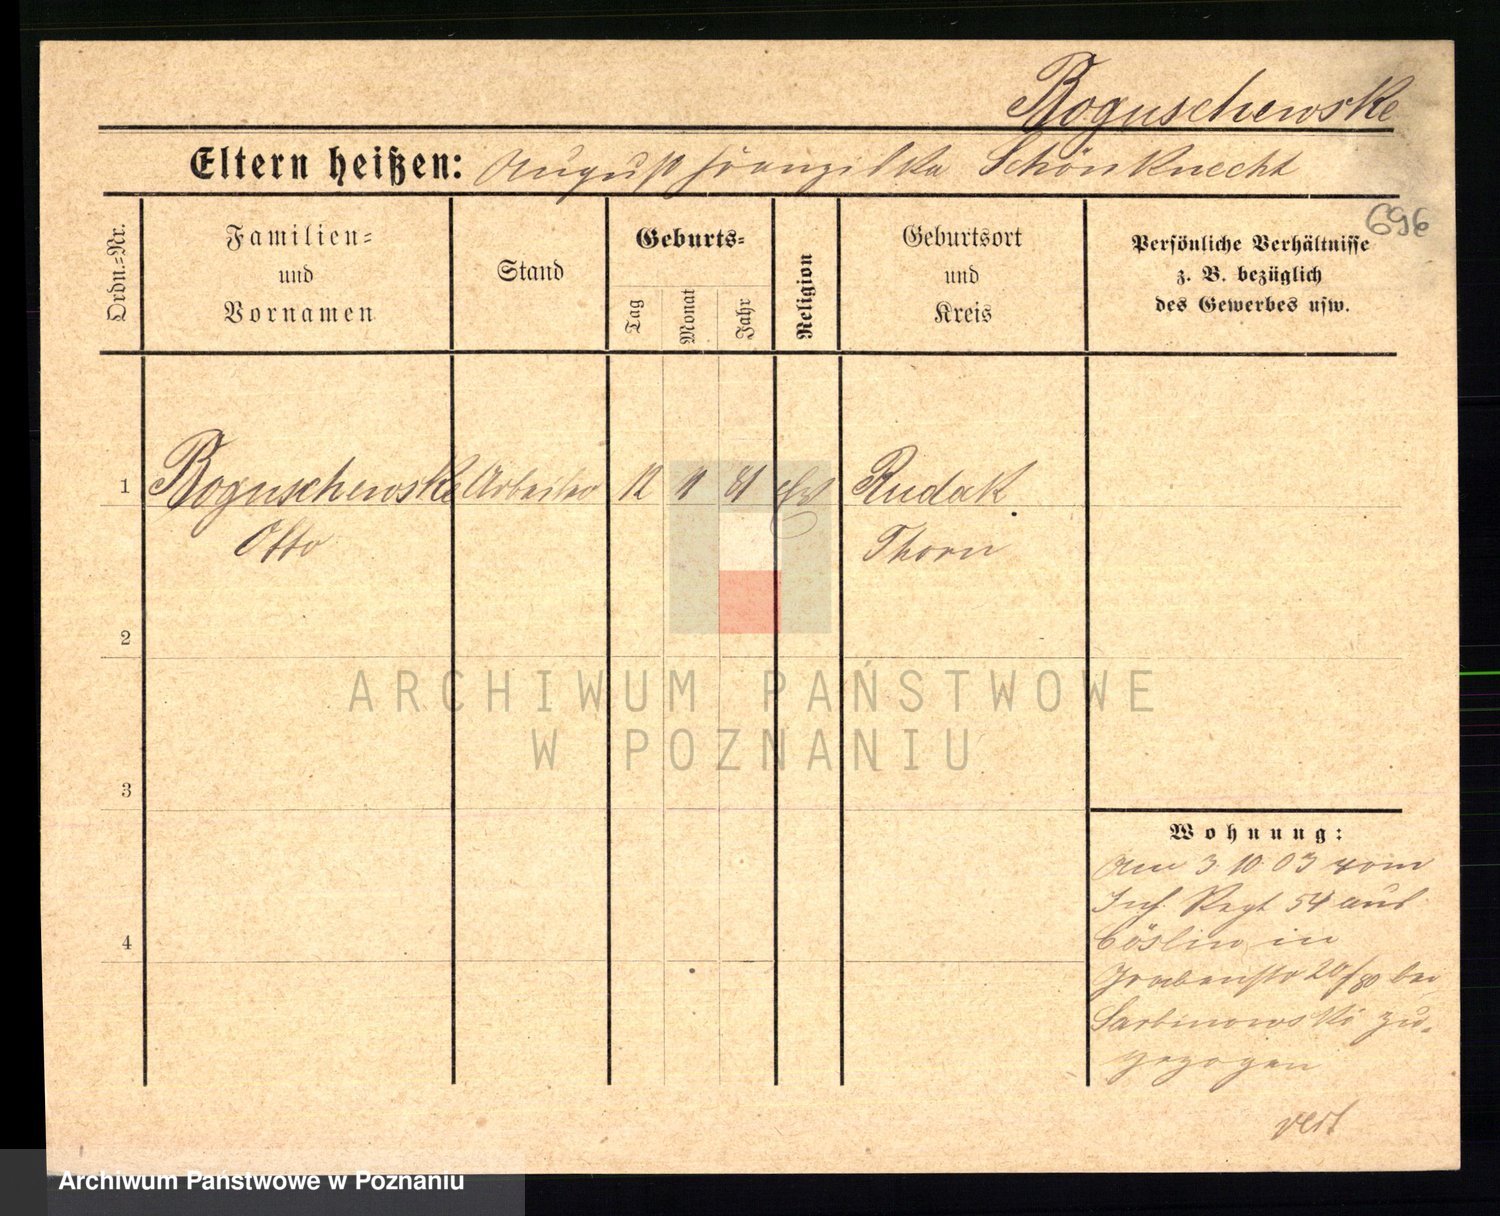 Boguschewske
Eltern heißen: August Franziska Schönknecht
696
Ordn.-Nr.
Familien-
und
Vornamen
Stand
Geburts-
Tag
Monat
Jahr
Religion
Geburtsort
und
Kreis
Persönliche Verhältnisse
z. B. bezüglich
des Gewerbes usw.
1
Boguschewske Arbeiter 12 11 81 Ev Rudak
Otto Thorn
2
ARCHIWUM PAŃSTWOWE
W POZNANIU
3
Wohnung:
Am 3.10.03 vom
Inf. Regt 54 aus
Cöslin in
Grabenstr 20/ bei
Sarbinowski zu-
gezogen
4
Archiwum Państwowe w Poznaniu